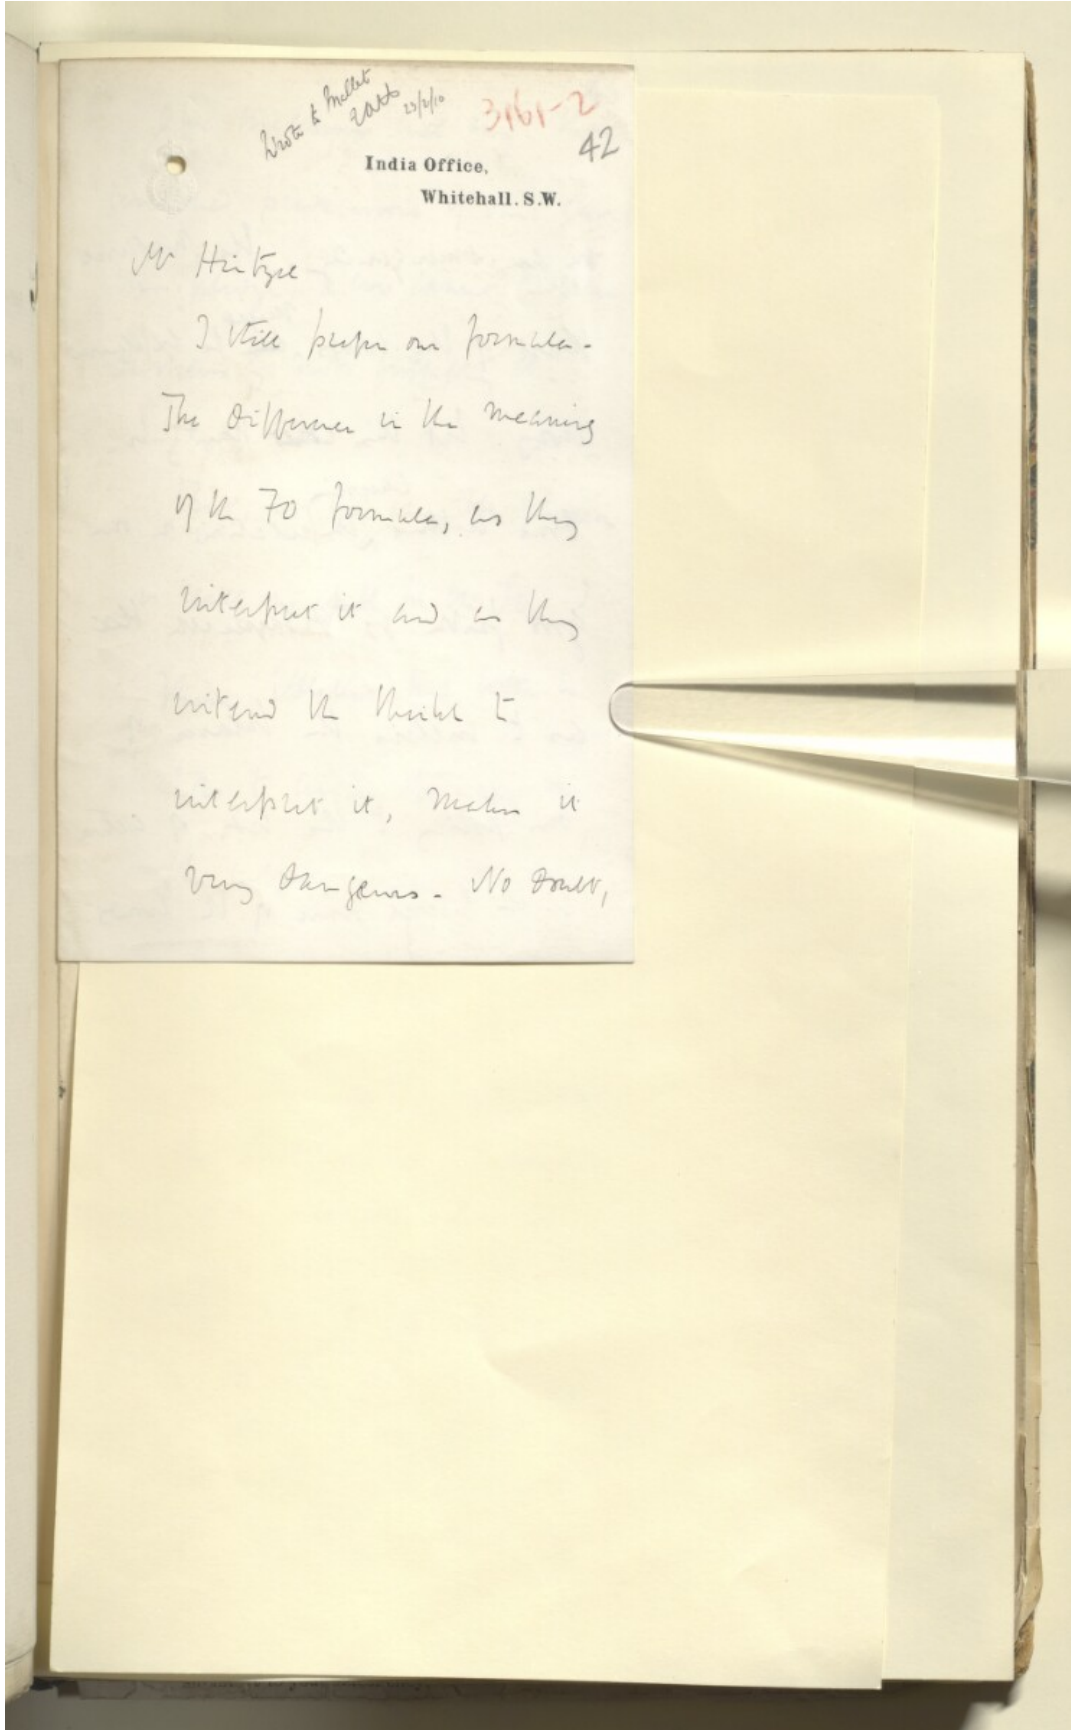 Wrote to Mallet
23/2/10
3161-2
42
India Office,
Whitehall. S.W.
Mr Hirtzel
I still prefer our formula.
The difference in the meaning
of the FO formula, as they
interpret it and as they
intend the Sheikh to
interpret it, makes it
very dangerous. No doubt,